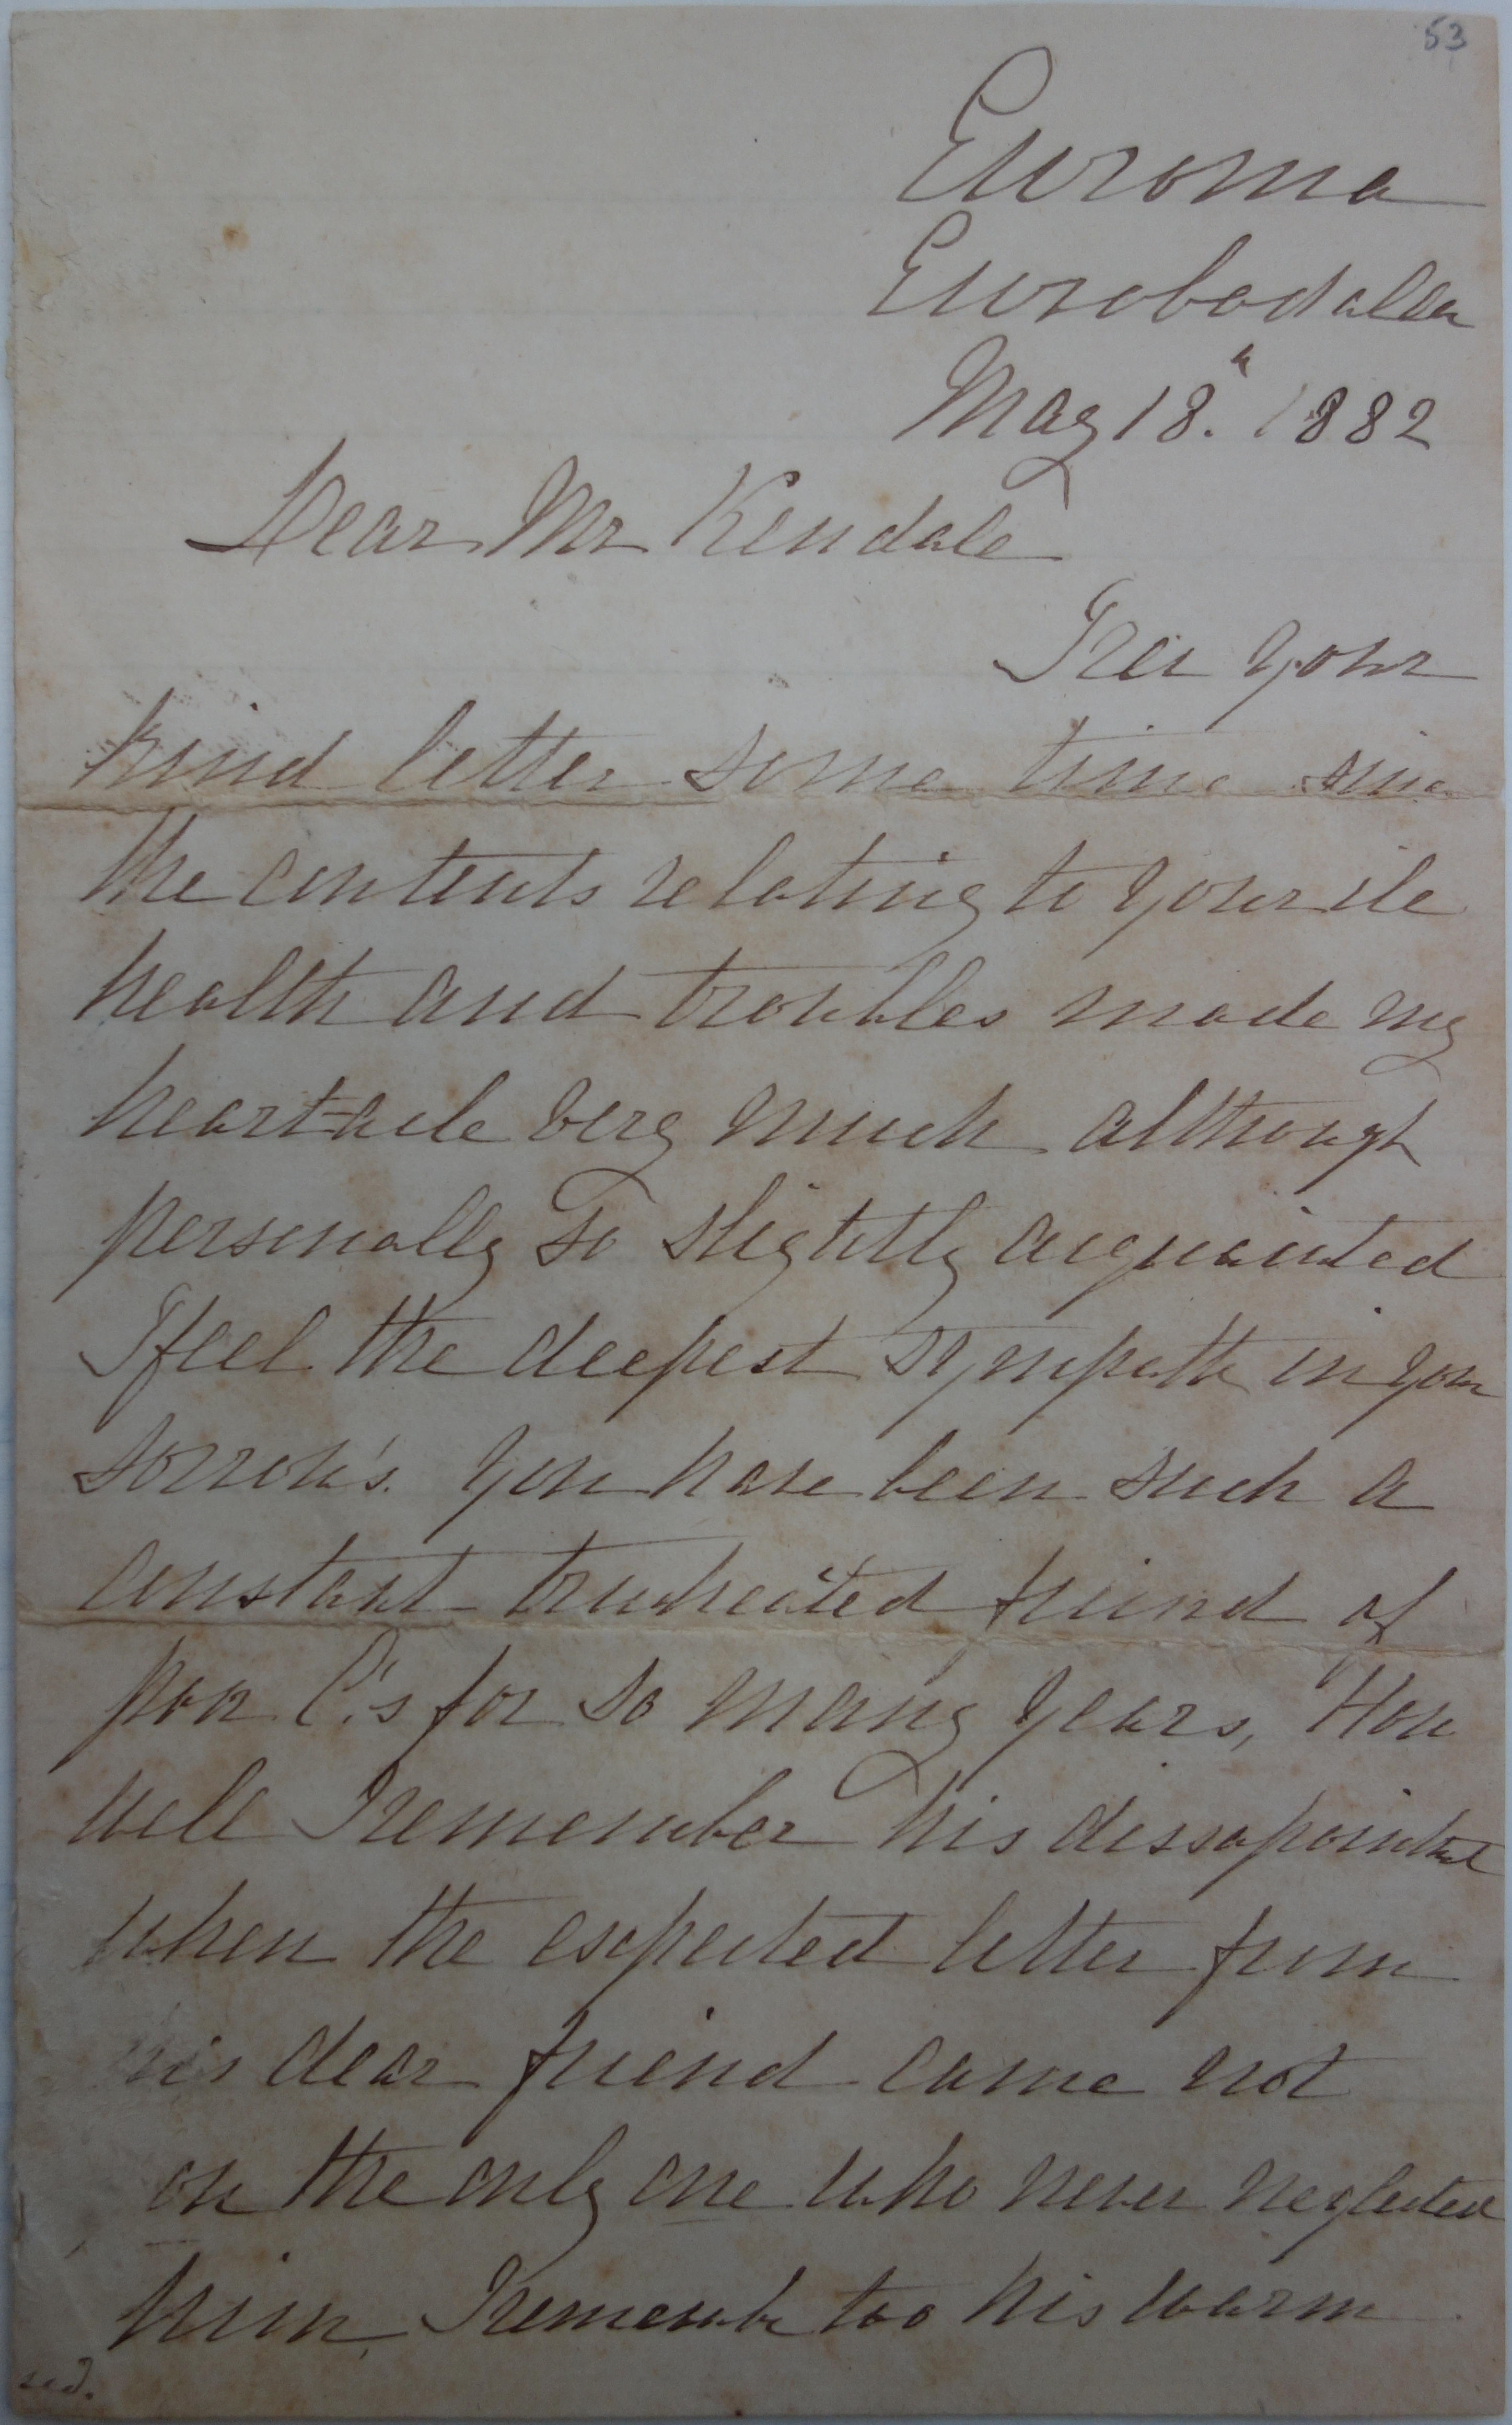 53
Euroma
Eurobodalla
May 18. 1882
Dear Mr Kendall
I rec your
kind letter some time since
the contents relating to your ill
health and troubles made my
heart=ache very much although
personally so slightly acquainted
I feel the deepest sympath in your
sorrow's. You have been such a
constant truehearted friend of
poor C's for so many years, How
well I remember his dissapointment
when the expected letter from
his dear friend came not
on the only one who never neglected
him, I remember too his warm